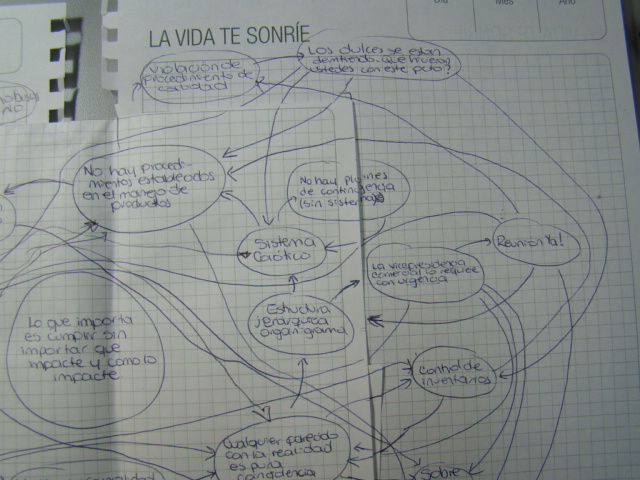 Día
Mes
Año
LA VIDA TE SONRÍE
Violación de
procedimiento de
calidad
Los dulces se estan
ustedes con este
No hay procedi-
mientos establecidos
en el manejo de
productos
No hay planes
de contingencia
(sin sistemas)
Sistema
Caótico
Reunion Ya!
La vicepresidencia
comercial lo requiere
con urgencia
Estructura
jerárquica
organigrama
Lo que importa
es cumplir sin
importar que
impacte y como lo
impacte
Control de
inventarios
Cualquier parecido
con la realidad
es pura
coincidencia
Sobre